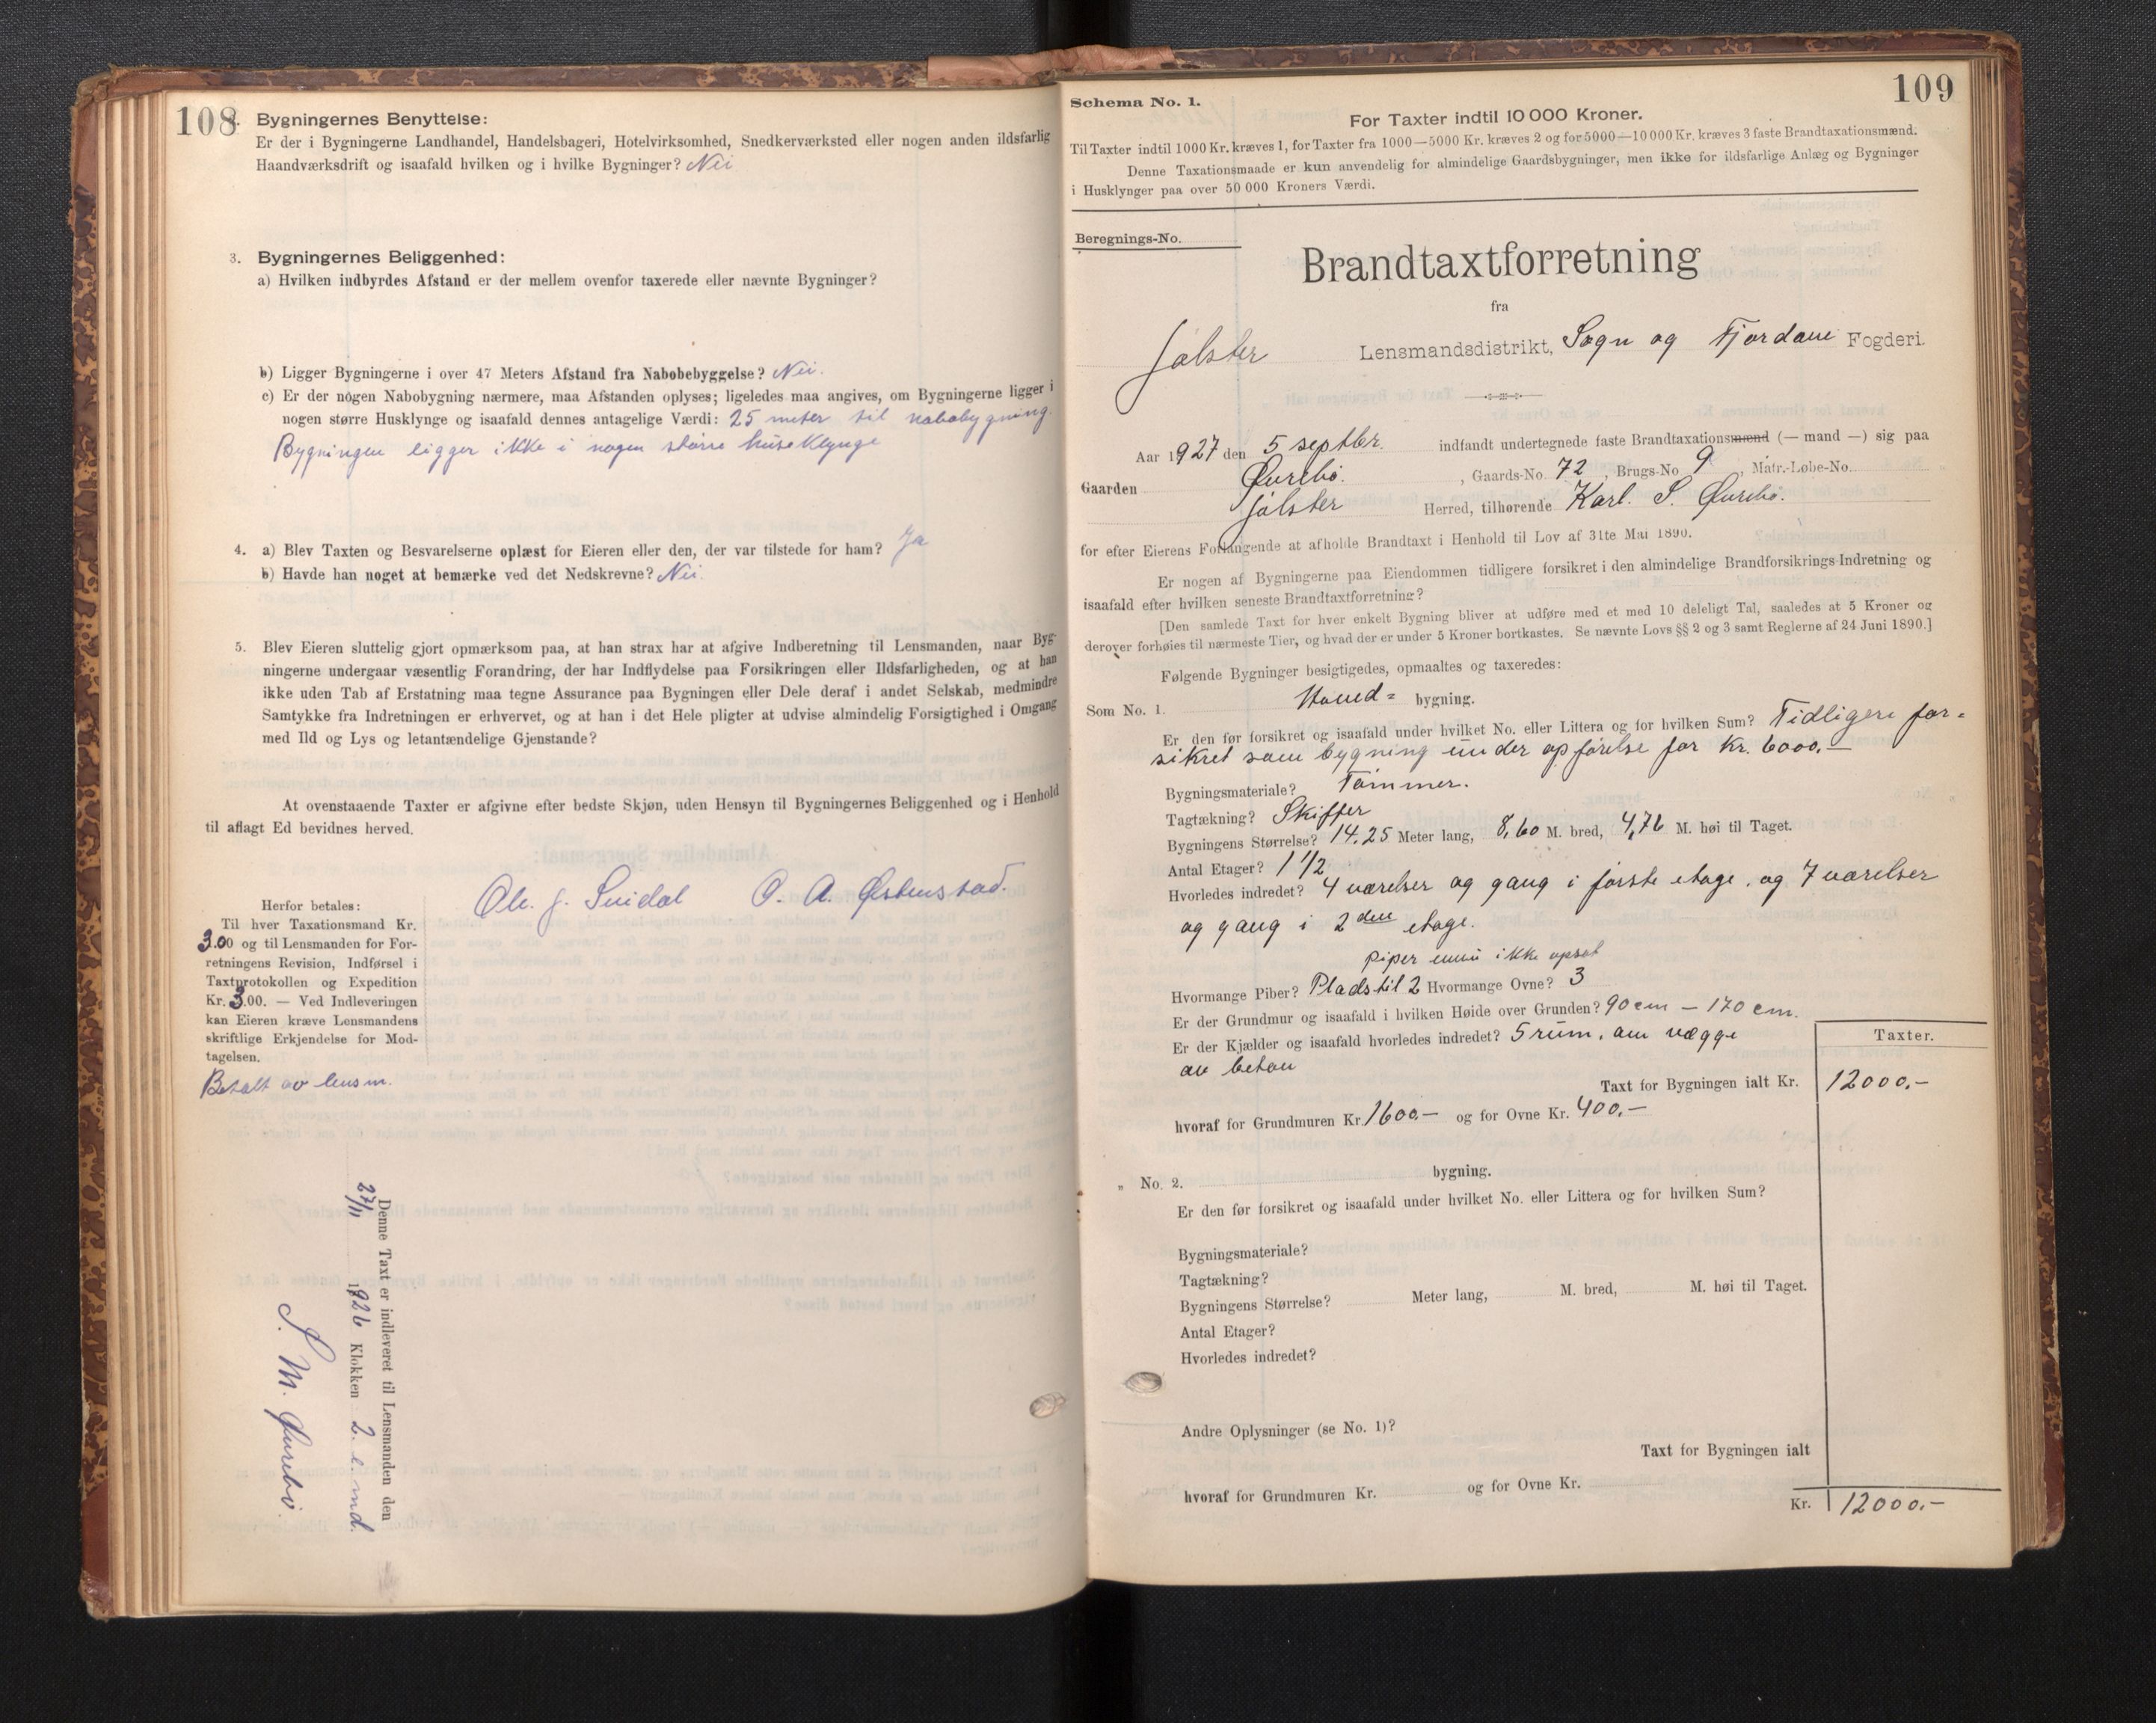 108
2. Bygningernes Benyttelse:
Er der i Bygningerne Landhandel, Handelsbageri, Hotelvirksomhed, Snedkerværksted eller nogen anden ildsfarlig
Haandværksdrift og isaafald hvilken og i hvilke Bygninger? Nei
3. Bygningernes Beliggenhed:
a) Hvilken indbyrdes Afstand er der mellem ovenfor taxerede eller nævnte Bygninger?
b) Ligger Bygningerne i over 47 Meters Afstand fra Nabobebyggelse? Nei.
c) Er der nogen Nabobygning nærmere, maa Afstanden oplyses; ligeledes maa angives, om Bygningerne ligger i
nogen større Husklynge og isaafald dennes antagelige Værdi: 25 meter til nabobygning.
Bygningen ligger ikke i nogen større huseklynge
4. a) Blev Taxten og Besvarelserne oplæst for Eieren eller den, der var tilstede for ham? Ja
b) Havde han noget at bemærke ved det Nedskrevne? Nei.
5. Blev Eieren sluttelig gjort opmærksom paa, at han strax har at afgive Indberetning til Lensmanden, naar Byg-
ningerne undergaar væsentlig Forandring, der har Indflydelse paa Forsikringen eller Ildsfarligheden, og at han
ikke uden Tab af Erstatning maa tegne Assurance paa Bygningen eller Dele deraf i andet Selskab, medmindre
Samtykke fra Indretningen er erhvervet, og at han i det Hele pligter at udvise almindelig Forsigtighed i Omgang
med Ild og Lys og letantændelige Gjenstande?
At ovenstaaende Taxter er afgivne efter bedste Skjøn, uden Hensyn til Bygningernes Beliggenhed og i Henhold
til aflagt Ed bevidnes herved.
Ole. J. O. A. Østenstad.
Herfor betales:
Til hver Taxationsmand Kr.
3.00 og til Lensmanden for For-
retningens Revision, Indførsel i
Taxtprotokollen og Expedition
Kr. 3.00. — Ved Indleveringen
kan Eieren kræve Lensmandens
skriftlige Erkjendelse for Mod-
tagelsen.
Betalt av lensm.
Denne Taxt er indleveret til Lensmanden den
27/11 1926 Klokken 2. e. md.
S. M. Øurebø.
109
Schema No. 1.
For Taxter indtil 10 000 Kroner.
Til Taxter indtil 1000 Kr. kræves 1, for Taxter fra 1000—5000 Kr. kræves 2 og for 5000—10 000 Kr. kræves 3 faste Brandtaxationsmænd.
Denne Taxationsmaade er kun anvendelig for almindelige Gaardsbygninger, men ikke for ildsfarlige Anlæg og Bygninger
i Husklynger paa over 50 000 Kroners Værdi.
Beregnings-No.
Brandtaxtforretning
fra
Jølster Lensmandsdistrikt, Sogn og Fjordane Fogderi.
Aar 1927 den 5 septbr. indfandt undertegnede faste Brandtaxationsmænd (— mand —) sig paa
Gaarden Øurebø. , Gaards-No. 72 , Brugs-No. 9 , Matr.-Løbe-No.
Jølster Herred, tilhørende Karl. S. Øurebø.
for efter Eierens Forlangende at afholde Brandtaxt i Henhold til Lov af 31te Mai 1890.
Er nogen af Bygningerne paa Eiendommen tidligere forsikret i den almindelige Brandforsikrings-Indretning og
isaafald efter hvilken seneste Brandtaxtforretning?
[Den samlede Taxt for hver enkelt Bygning bliver at udføre med et med 10 deleligt Tal, saaledes at 5 Kroner og
derover forhøies til nærmeste Tier, og hvad der er under 5 Kroner bortkastes. Se nævnte Lovs §§ 2 og 3 samt Reglerne af 24 Juni 1890.]
Følgende Bygninger besigtigedes, opmaaltes og taxeredes:
Som No. 1. Hoved= bygning.
Er den før forsikret og isaafald under hvilket No. eller Littera og for hvilken Sum? Tidligere for=
sikret som bygning under opførelse for kr. 6000.—
Bygningsmateriale? Tømmer.
Tagtækning? Skiffer
Bygningens Størrelse? 14.25 Meter lang, 8,60 M. bred, 4,76 M. høi til Taget.
Antal Etager? 1 1/2
Hvorledes indredet? 4 værelser og gang i første etage. og 7 værelser
og gang i 2den etage.
piper ennu ikke opsat
Hvormange Piber? Plads til 2 Hvormange Ovne? 3
Er der Grundmur og isaafald i hvilken Høide over Grunden? 90 cm — 170 cm.
Er der Kjælder og isaafald hvorledes indredet? 5 rum. vægge
av beton
Taxter.
Taxt for Bygningen ialt Kr. 12000.-
hvoraf for Grundmuren Kr. 1600.— og for Ovne Kr. 400.—
„ No. 2. bygning.
Er den før forsikret og isaafald under hvilket No. eller Littera og for hvilken Sum?
Bygningsmateriale?
Tagtækning?
Bygningens Størrelse? Meter lang, M. bred, M. høi til Taget.
Antal Etager?
Hvorledes indredet?
Andre Oplysninger (se No. 1)?
Taxt for Bygningen ialt
hvoraf for Grundmuren Kr. og for Ovne Kr.
Kr. 12000.-